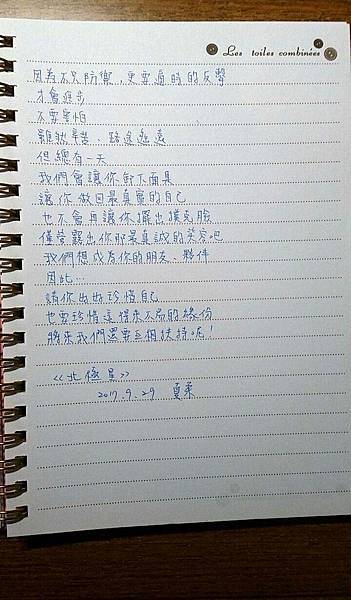 Les toiles combinées
因為不只防禦，更要適時的反擊
才會進步
不要害怕
雖然辛苦、路途遙遠
但總有一天
我們會讓你卸下面具
讓你做回最真實的自己
也不會再讓你擺出撲克臉
僅管露出你那最真誠的笑容吧
我們想成為你的朋友、夥伴
因此…
請你好好珍惜自己
也要珍惜這得來不易的緣份
將來我們還要互相扶持呢！
<<北極星>>
2017.9.29 夏柔